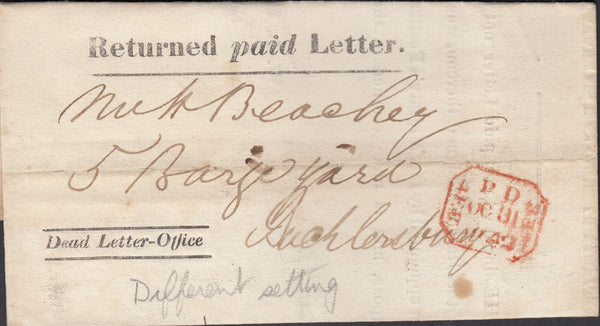 Returned paid Letter.
Mr H Beachey
5 Barge Yard
Bucklersbury
Dead Letter-Office
P D
OC
Different setting